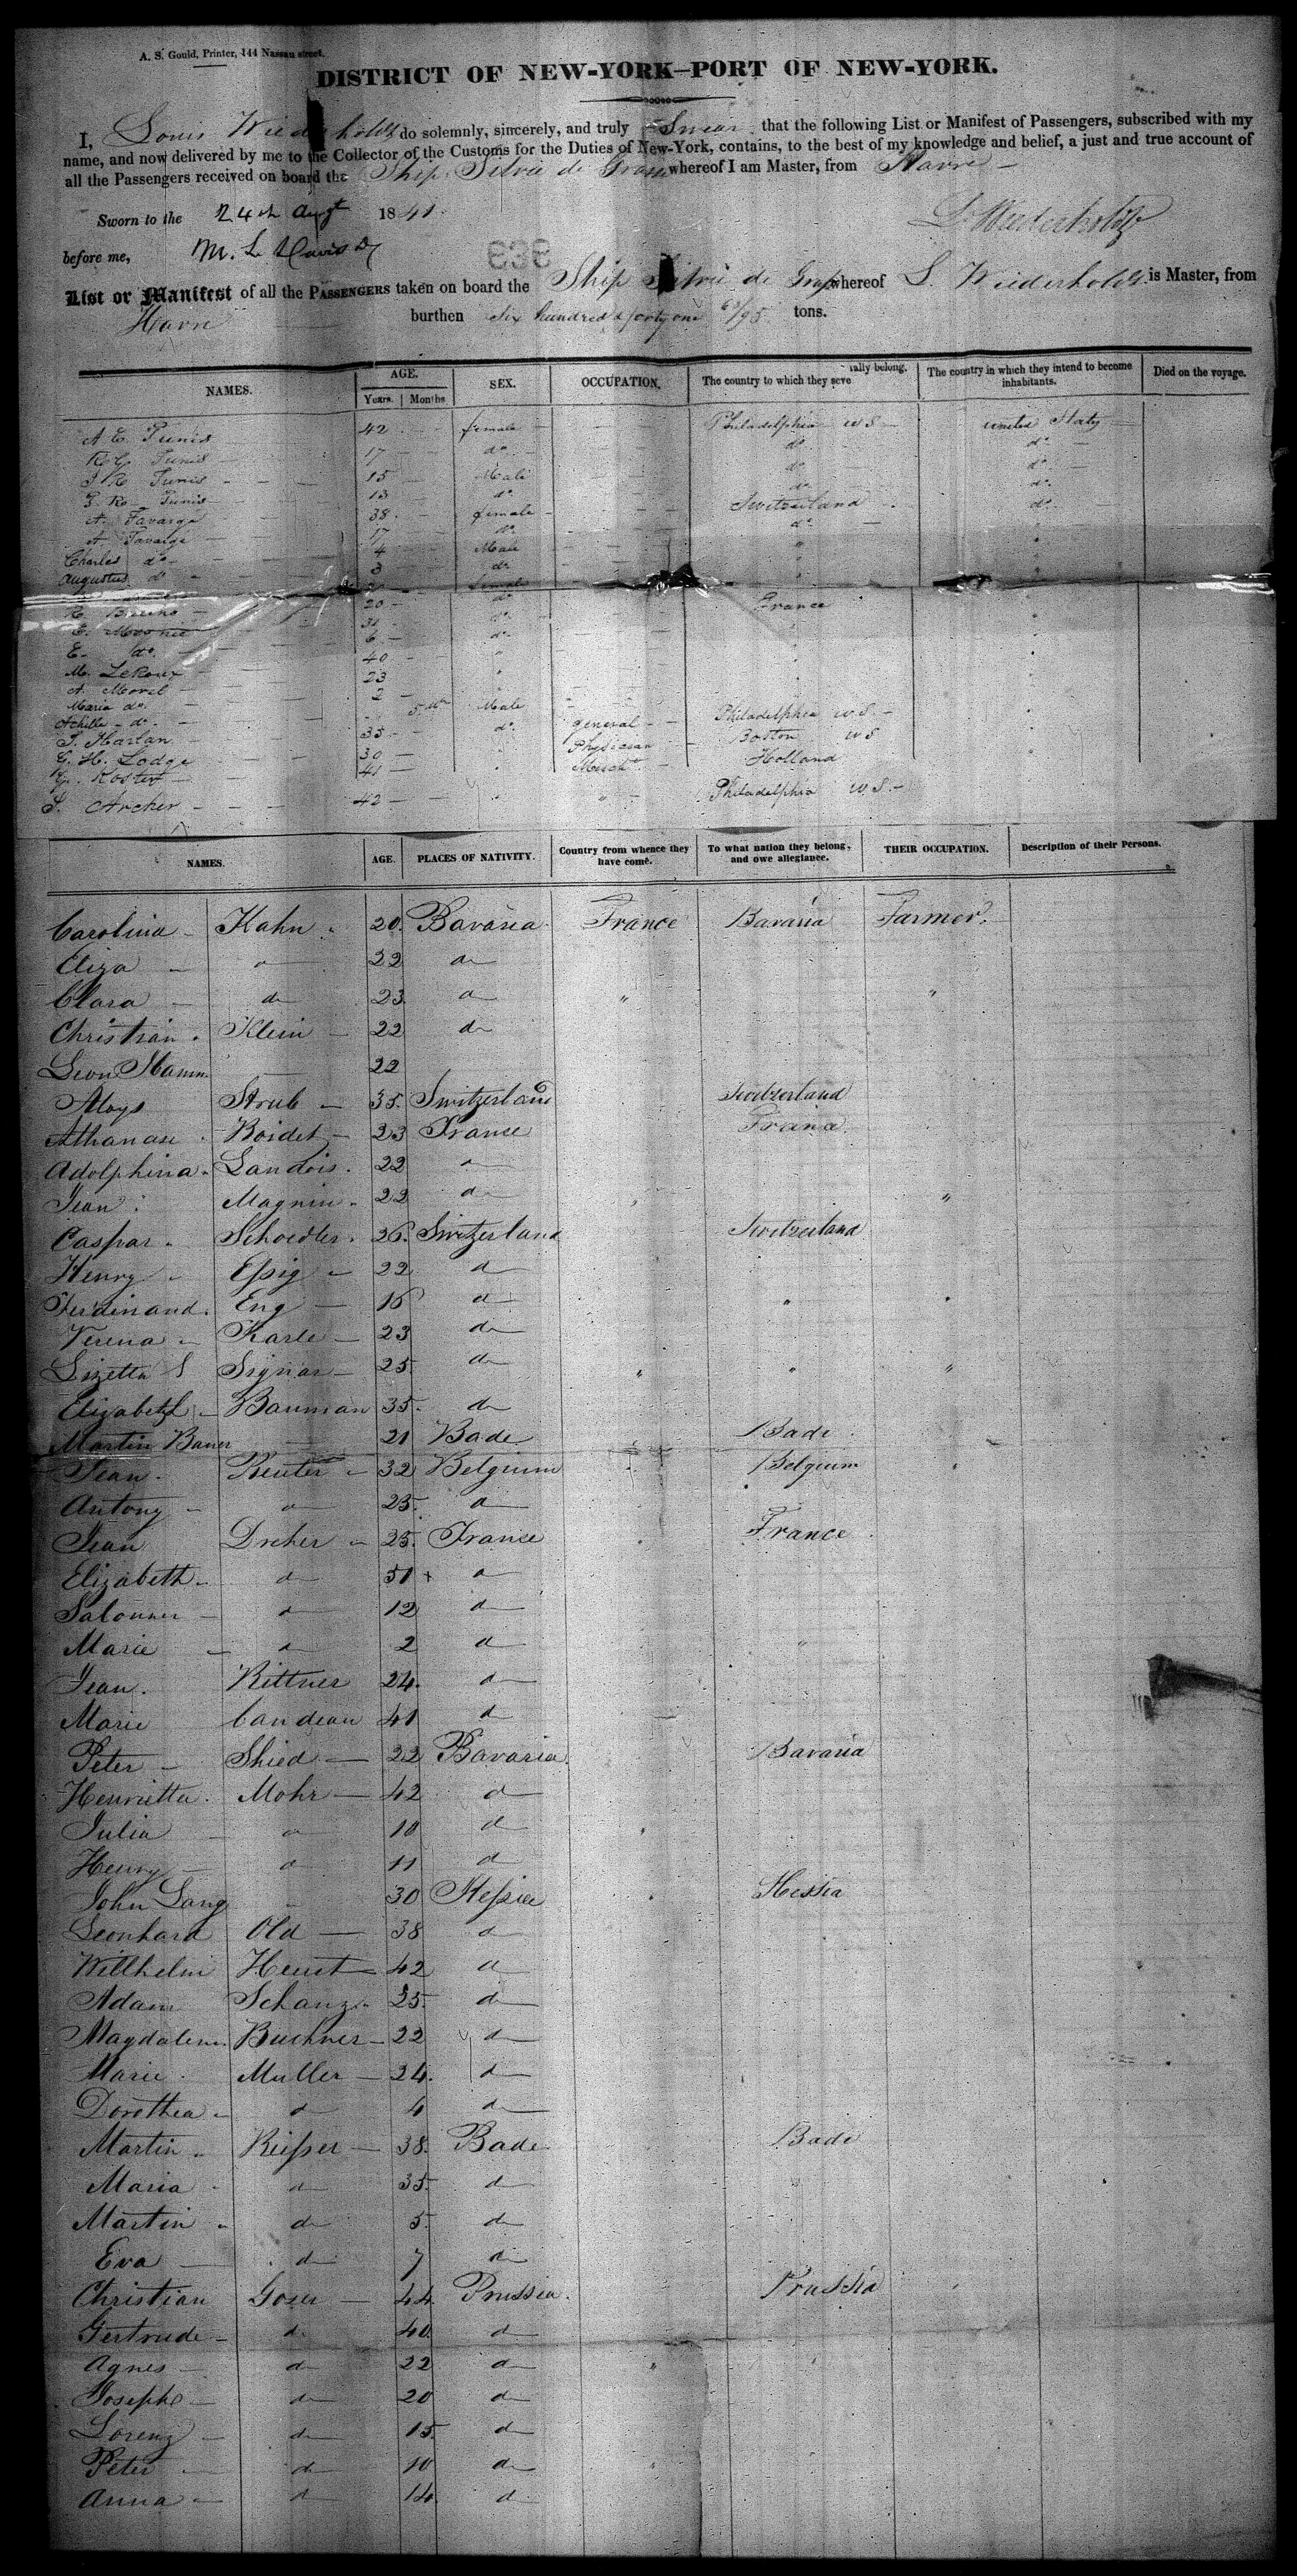 A. S. Gould, Printer, 144 Nassau street.
DISTRICT OF NEW-YORK—PORT OF NEW-YORK.
I, Louis Wiederholdt do solemnly, sincerely, and truly Swear that the following List or Manifest of Passengers, subscribed with my
name, and now delivered by me to the Collector of the Customs for the Duties of New-York, contains, to the best of my knowledge and belief, a just and true account of
all the Passengers received on board the Ship Silvie de Grasse whereof I am Master, from Havre
Sworn to the 24th Augt 1841.
L. Wiederholdt
before me, M. L. Davis
List or Manifest of all the PASSENGERS taken on board the Ship Silvie de Grasse whereof L. Wiederholdt is Master, from
Havre burthen Six hundred & forty one 65/95 tons.
NAMES. AGE. SEX. OCCUPATION. The country to which they seve rally belong. The country in which they intend to become inhabitants. Died on the voyage.
Years. Months
A E Tunis 42 female Philadelphia U S United States
R E Tunis 17 do. do do.
J R Tunis 15 Male do. do.
E. R. Tunis 13 do. do. do.
A. Favarge 38. female Switzerland do.
A Favarge 17 do. do. "
Charles do. 4 Male " "
Augustus do 3 do. " "
female
20 do France "
E. 31 do. "
E. do. 6 do. "
M. LeRoux 40 " "
A. Morel 23 " "
Maria do. 2 "
Achille do. 5 Male
J. Harlan 35 do. general Philadelphia U S
G. H. Lodge 30 Physician Boston U S
G. Koster 41 Mercht. Holland
J. Archer 42 " Philadelphia U. S.
NAMES. AGE. PLACES OF NATIVITY. Country from whence they have come. To what nation they belong, and owe allegiance. THEIR OCCUPATION. Description of their Persons.
Carolina Kahn 20. Bavaria France Bavaria Farmer
Eliza do 22 do
Clara do 23 do " "
Christian Klein 22 do
Leon Hamm 22
Aloys Strub 35. Switzerland Switzerland
Athanase Boidet 23 France France
Adolphina Landois 22 do
Jean Magnin 22 do "
Caspar Schoedler 26. Switzerland Switzerland
Henry Essig 22 do
Ferdinand Eng 16 do "
Verena Karle 23 do
Lizetta S Signar 25. do " " "
Elizabeth Bauman 35. do
Martin Bauer 21 Bade Bade
Jean Reuter 32 Belgium Belgium
Antony do 25. do
Jean Dreher 25. France France
Elizabeth do 51 do
do 12 do
Marie do 2 do
Jean. Rittner 24. do
Marie Candeau 41 do
Peter Shied 22 Bavaria Bavaria
Henrietta Mohr 42 do
Julia do 10 do
Henry do 11 do
John Lang 30 Hessia Hessia
Leonhard Old 38 do
Willhelm Heust 42 do
Adam Schanz 25. do
Magdalena Buchner 22 do
Marie Muller 24. do
Dorothea do 4 do
Martin Reisser 38. Bade Bade
Maria do 35. do
Martin do 5. do
Eva do 7 do
Christian Goser 44. Prussia Prussia
Gertrude do 40. do
Agnes do 22 do
Joseph do 20 do
Lorenz do 15. do
Peter do 10 do
Anna do 14. do